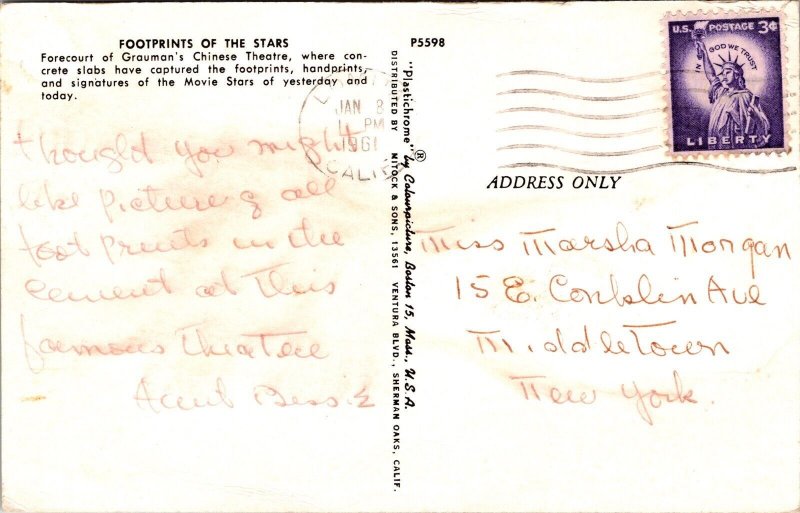 FOOTPRINTS OF THE STARS
Forecourt of Grauman's Chinese Theatre, where con-
crete slabs have captured the footprints, handprints,
and signatures of the Movie Stars of yesterday and
today.
P5598
JAN 8
PM
1961
CALIF
U.S. POSTAGE 3¢
IN GOD WE TRUST
LIBERTY
thought you might
like picture of all
foot prints in the
cement at this
famous theatre
Aunt Bessie
"Plastichrome" ® by Colourpicture, Boston 15, Mass., U.S.A.
DISTRIBUTED BY MITOCK & SONS, 13561 VENTURA BLVD., SHERMAN OAKS, CALIF.
ADDRESS ONLY
Miss Marsha Morgan
15 E. Conklin Ave
Middletown
New York.